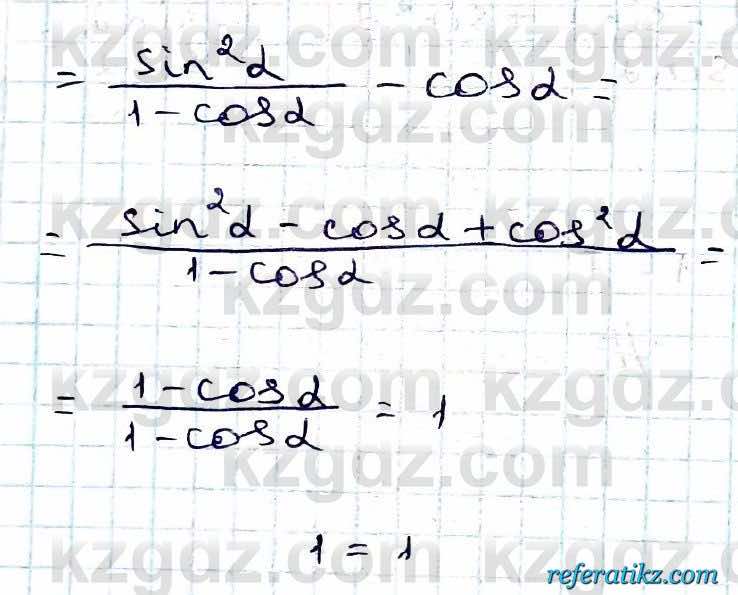 = sin²α / (1 - cosα) - cosα =
= (sin²α - cosα + cos²α) / (1 - cosα) =
= (1 - cosα) / (1 - cosα) = 1
1 = 1
kzgdz.com
referatikz.com